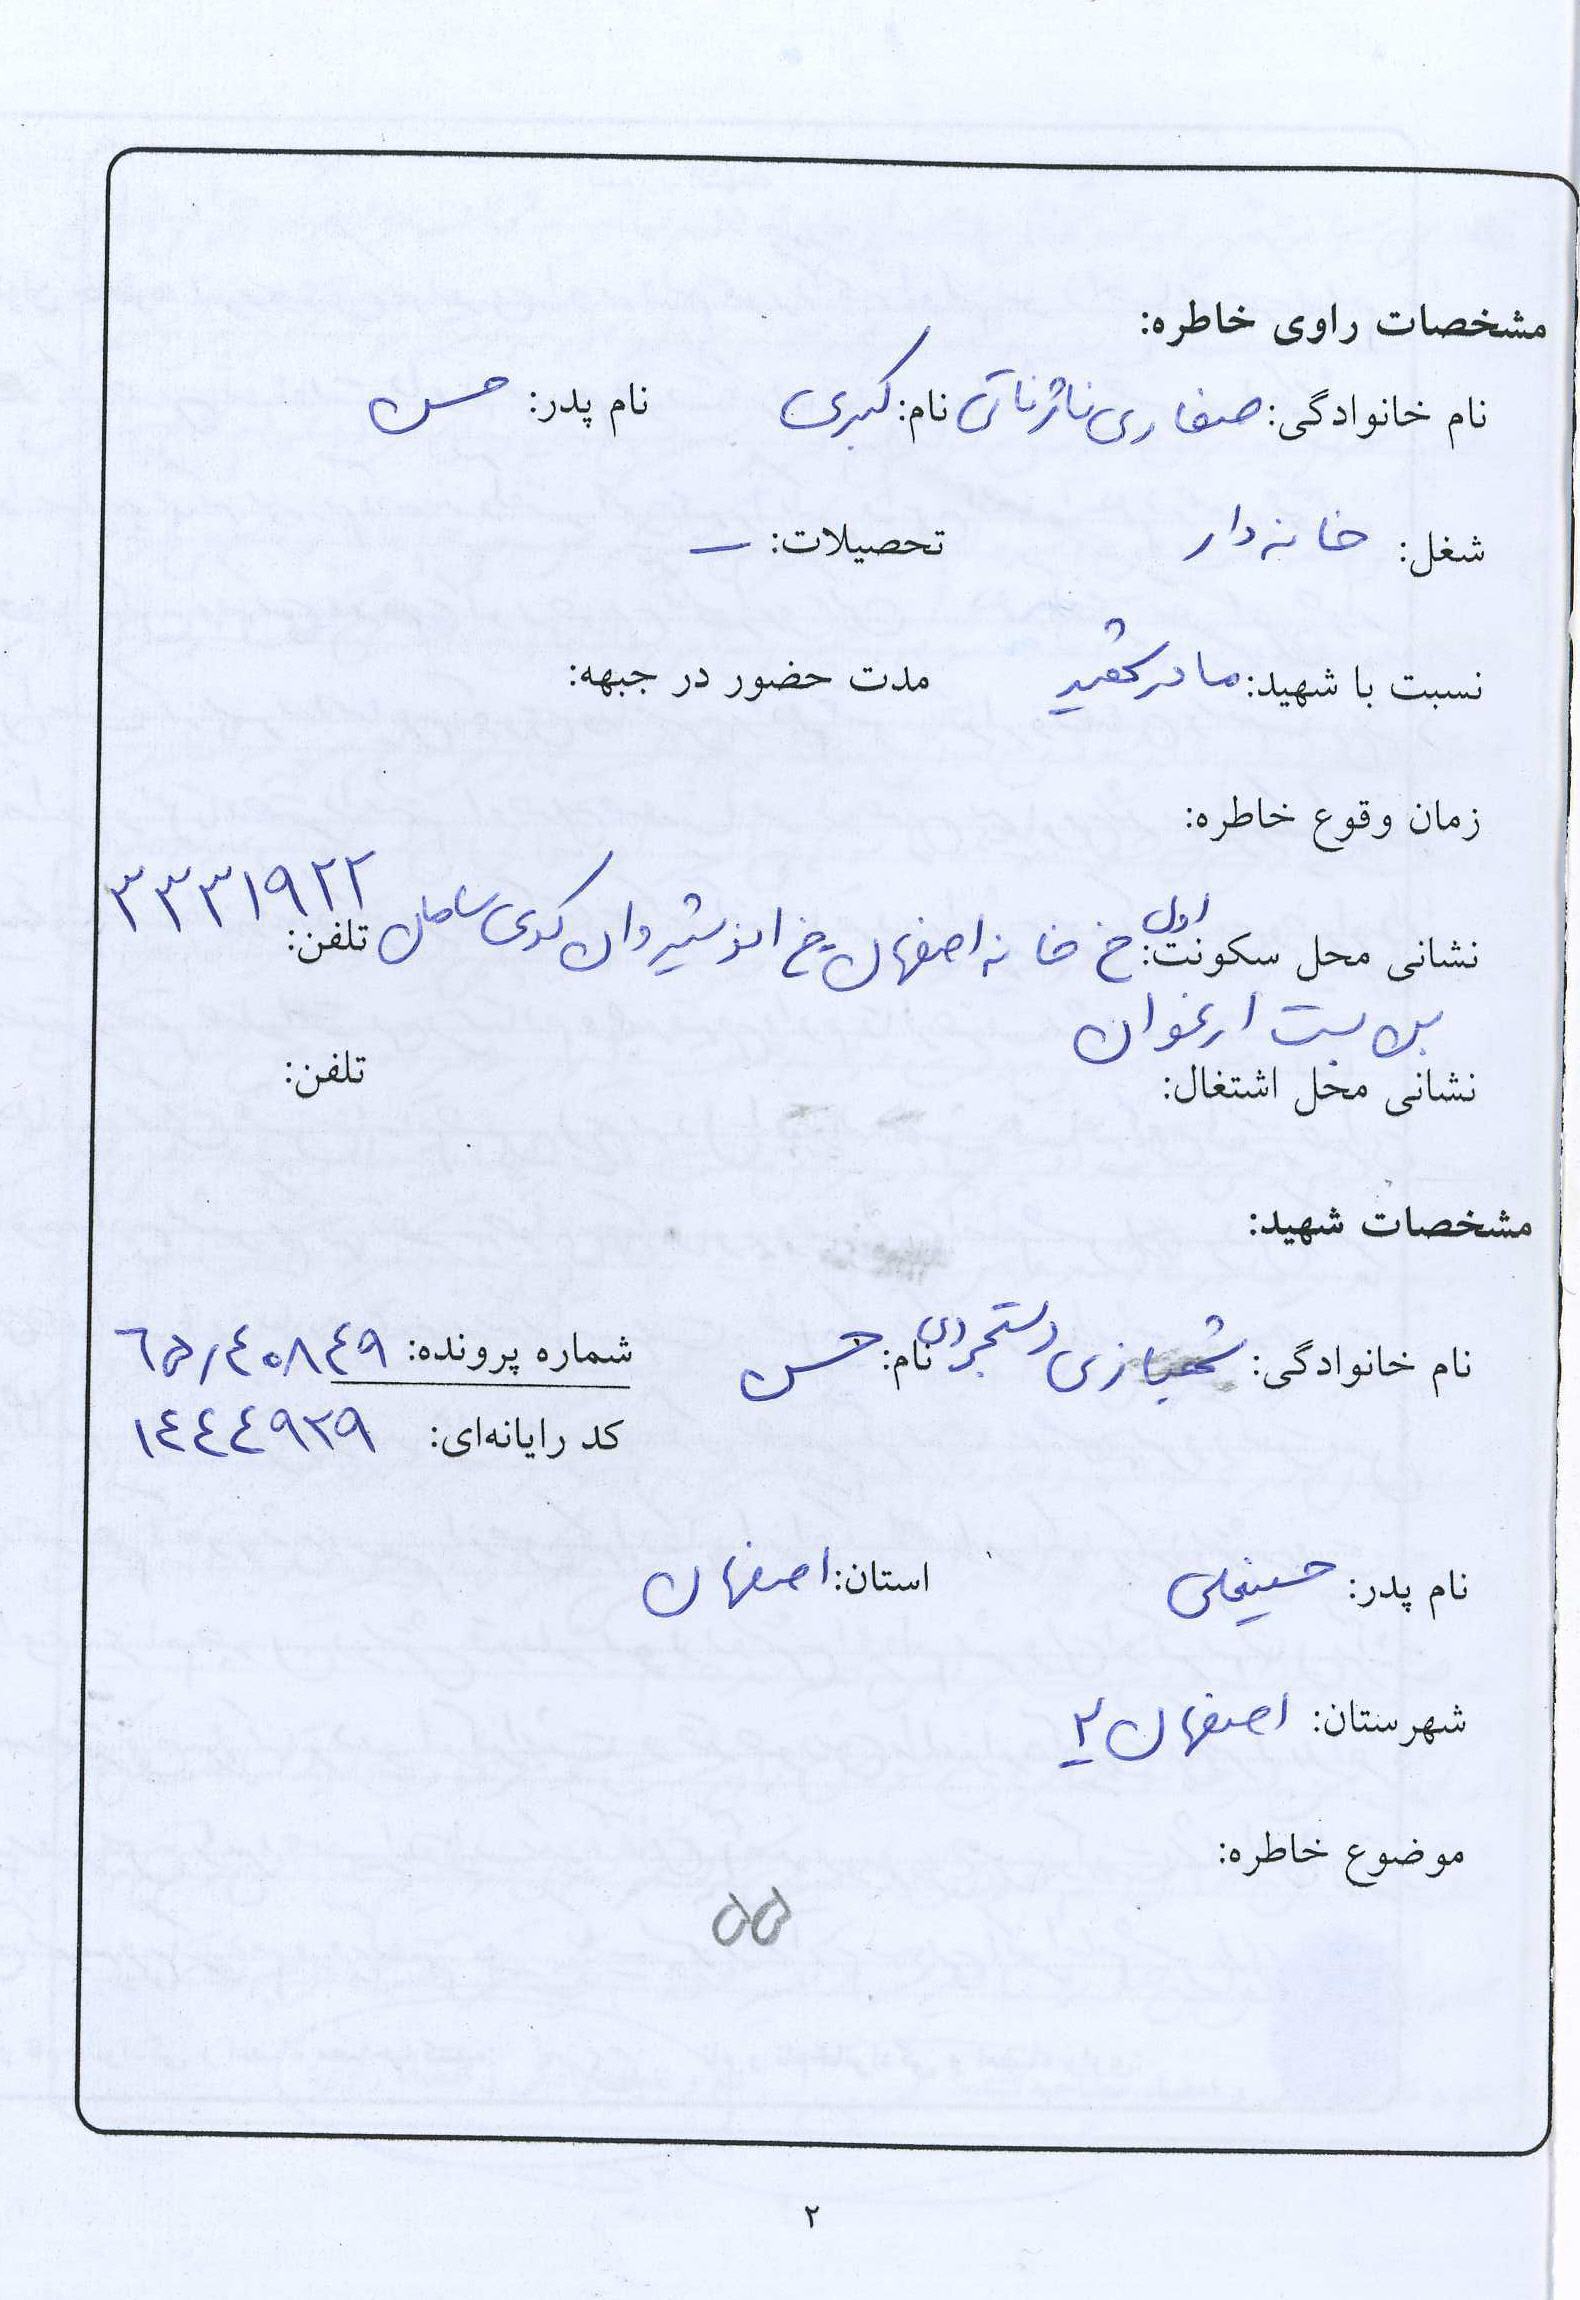 مشخصات راوی خاطره:
نام خانوادگی: صفاری نام: کبری نام پدر: حسن
شغل: خانه دار تحصیلات: –
نسبت با شهید: مادر شهید مدت حضور در جبهه:
زمان وقوع خاطره:
نشانی محل سکونت: خ خانه اصفهان خ اول انوشیروان کوی سامان تلفن: ۳۳۳۱۹۲۲
بن بست ارغوان
نشانی محل اشتغال: تلفن:
مشخصات شهید:
نام خانوادگی: شهبازی دستجردی نام: حسن شماره پرونده: ۶۵/۴۰۸۴۹
کد رایانه‌ای: ۱۴۴۴۹۲۹
نام پدر: حسینعلی استان: اصفهان
شهرستان: اصفهان ۲
موضوع خاطره:
۵۵
۲